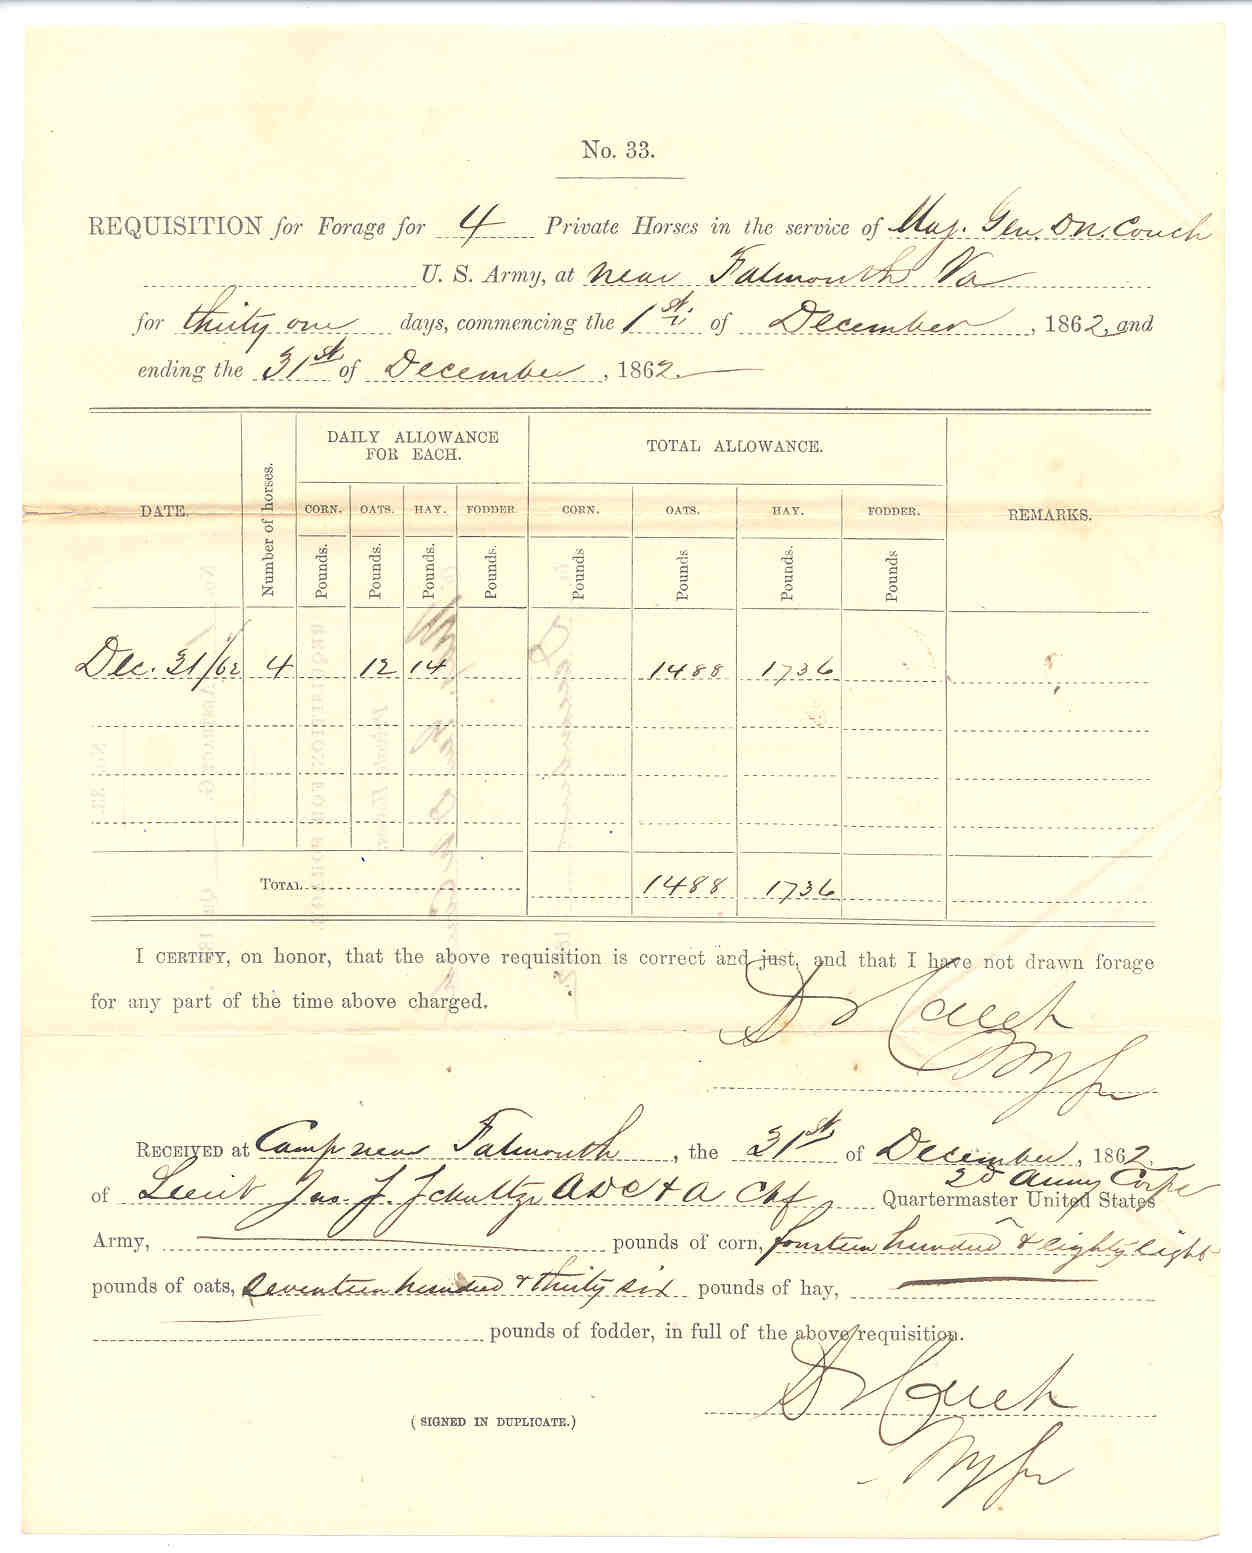 No. 33.
REQUISITION for Forage for 4 Private Horses in the service of Maj. Gen. D.N. Couch
U. S. Army, at near Falmouth Va
for thirty one days, commencing the 1st of December, 1862, and
ending the 31st of December, 1862.
DATE. Number of horses. DAILY ALLOWANCE FOR EACH. TOTAL ALLOWANCE. REMARKS.
CORN. OATS. HAY. FODDER. CORN. OATS. HAY. FODDER.
Pounds. Pounds. Pounds. Pounds. Pounds. Pounds Pounds. Pounds
Dec. 31/62 4 12 14 1488 1736
TOTAL 1488 1736
I CERTIFY, on honor, that the above requisition is correct and just, and that I have not drawn forage
for any part of the time above charged.
D N Couch
RECEIVED at Camp near Falmouth, the 31st of December, 1862
of Lieut Jas. J. Schultze ADC & A Chf 2D Army Corps Quartermaster United States
Army, pounds of corn, fourteen hundred & eighty eight
pounds of oats, seventeen hundred & thirty six pounds of hay,
pounds of fodder, in full of the above requisition.
D N Couch
(SIGNED IN DUPLICATE.)